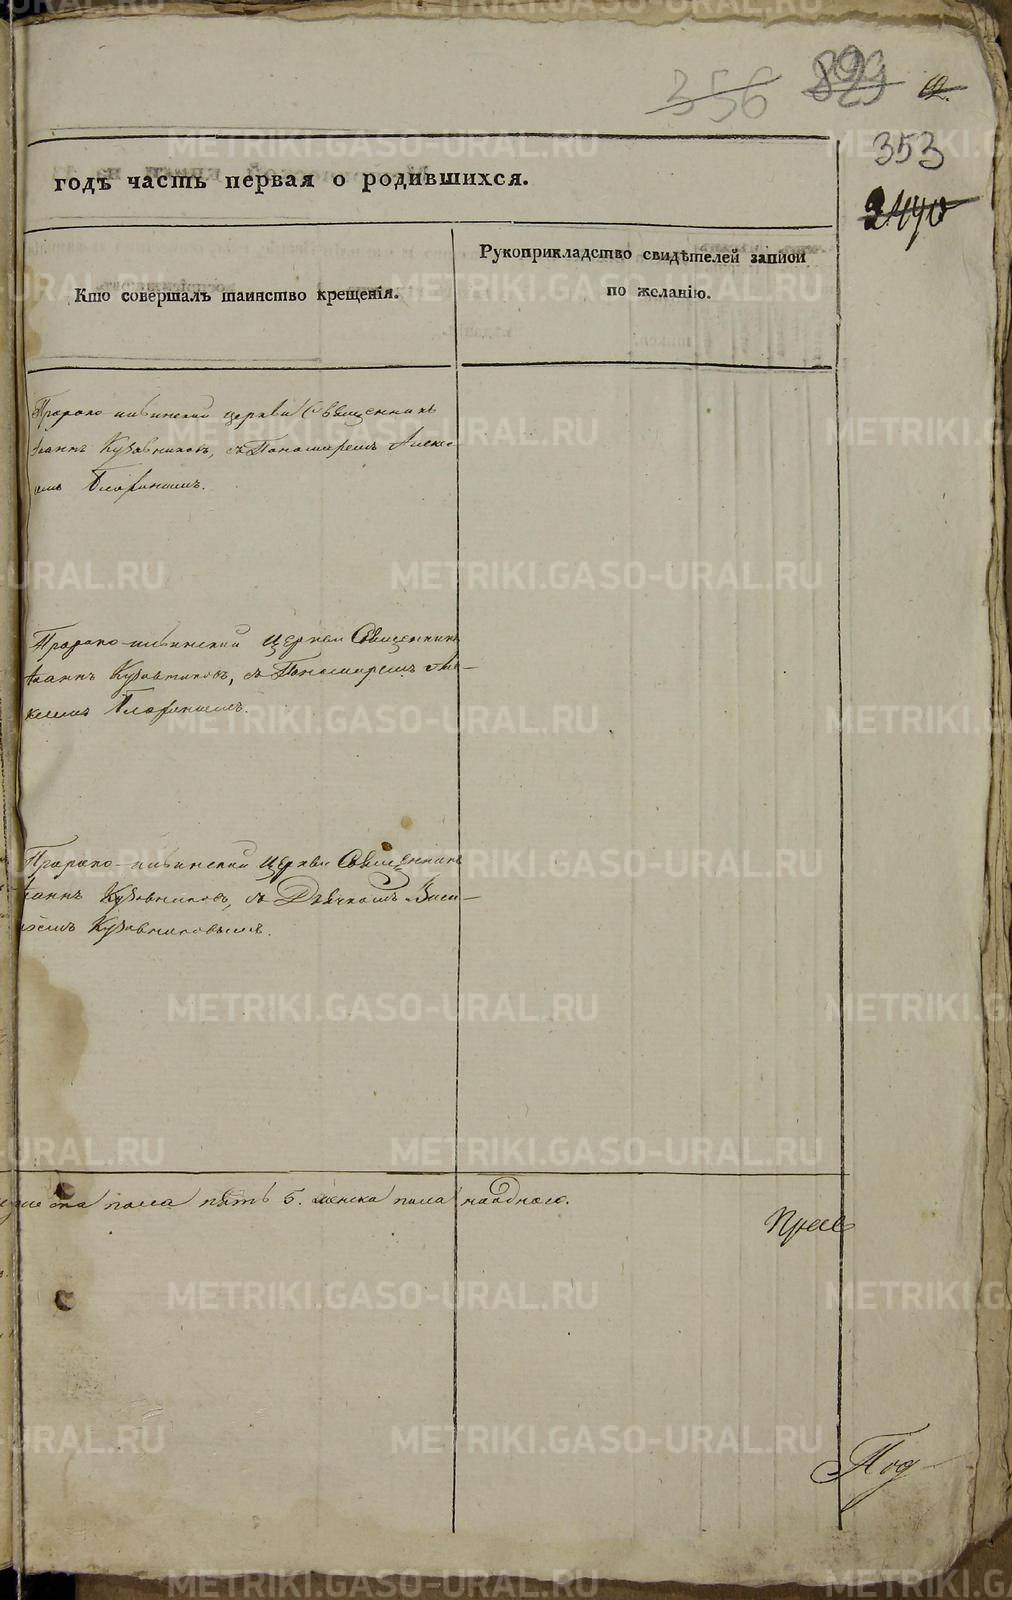 356 899 12.
353
2440
годъ часть первая о родившихся.
Кто совершалъ таинство крещенія.
Рукоприкладство свидѣтелей записи
по желанію.
Пророко-ильинской церкви Священникъ
Іоаннъ Кузовниковъ, съ Пономаремъ Алек-
Пророко-ильинской церкви Священникъ
Іоаннъ Кузовниковъ, съ Пономаремъ
Пророко-ильинской церкви Священникъ
Іоаннъ Кузовниковъ, съ Дьячкомъ Васи-
ліемъ Кузовниковымъ.
пола пять 5. женска пола ниодного.
Под-
METRIKI.GASO-URAL.RU